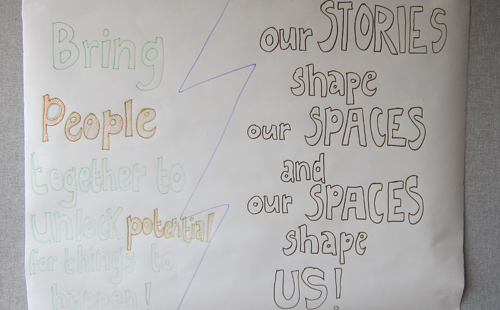 Bring
People
together to
unlock potential
for things to
happen!
our STORIES
shape
our SPACES
and
our SPACES
shape
US!